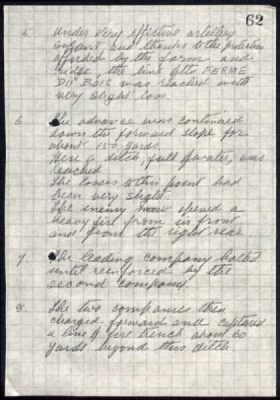 62
5 Under very effective artillery
support and thanks to the protection
afforded by the farm and
ridge the line of the FERME
DU BOIS was reached with
very slight loss.
6 The advance was continued
down the forward slope for
about 150 yards.
Here a ditch, full of water, was
reached
The losses to this point had
been very slight.
The enemy now opened a
heavy fire from in front
and from the right rear
7. The leading company halted
until reinforced by the
second company.
8. The two companies then
charged forward and captured
a line of fire trench about 60
yards beyond this ditch.